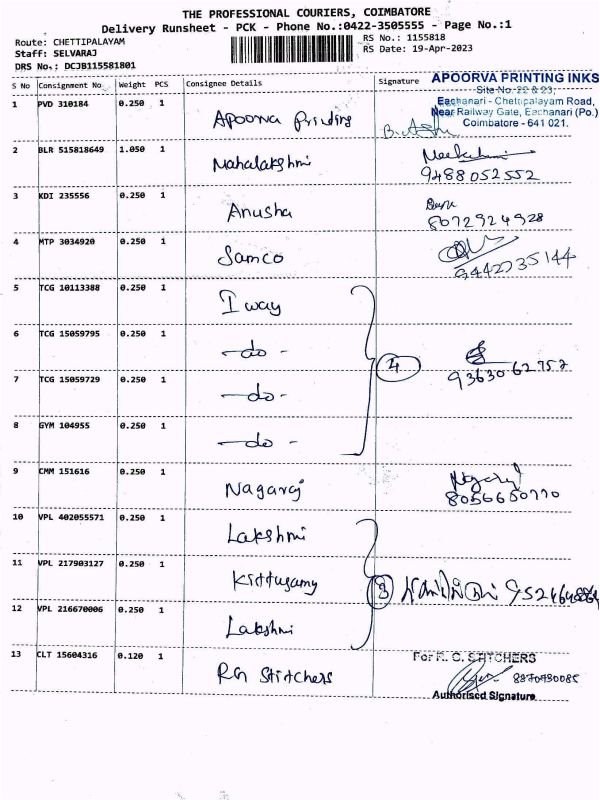 THE PROFESSIONAL COURIERS, COIMBATORE
Delivery Runsheet - PCK - Phone No.:0422-3505555 - Page No.:1
Route: CHETTIPALAYAM
Staff: SELVARAJ
DRS No.: DCJB115581801
RS No.: 1155818
RS Date: 19-Apr-2023
S No Consignment No Weight PCS Consignee Details Signature
APOORVA PRINTING INKS
Site No. 22 & 23,
Eachanari - Chettipalayam Road,
Near Railway Gate, Eachanari (Po.)
Coimbatore - 641 021.
1 PVD 310184 0.250 1 Apoorva Printing
2 BLR 515818649 1.050 1 Mahalakshmi
9488052552
3 KDI 235556 0.250 1 Anusha
8072924928
4 MTP 3034920 0.250 1 Samco
9442735144
5 TCG 10113388 0.250 1 I way
6 TCG 15059795 0.250 1 -do-
4
9363062752
7 TCG 15059729 0.250 1 -do-
8 GYM 104955 0.250 1 -do-
9 CMM 151616 0.250 1 Nagaraj
Nagaraj
8056650770
10 VPL 402055571 0.250 1 Lakshmi
11 VPL 217903127 0.250 1 Kittusamy
3
12 VPL 216670006 0.250 1 Lakshmi
13 CLT 15604316 0.120 1 RG Stitchers
For R. G. STITCHERS
Authorised Signature